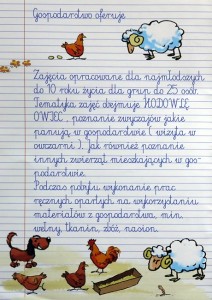 Gospodarstwo oferuje
Zajęcia opracowane dla najmłodszych
do 10 roku życia dla grup do 25 osób.
Tematyka zajęć obejmuje HODOWLĘ
OWIEC , poznanie zwyczajów jakie
panują w gospodarstwie ( wizyta w
owczarni ), jak również poznanie
innych zwierząt mieszkających w gos-
podarstwie.
Podczas pobytu wykonanie prac
ręcznych opartych na wykorzystaniu
materiałów z gospodarstwa, min.
wełny, tkanin, zbóż, nasion.